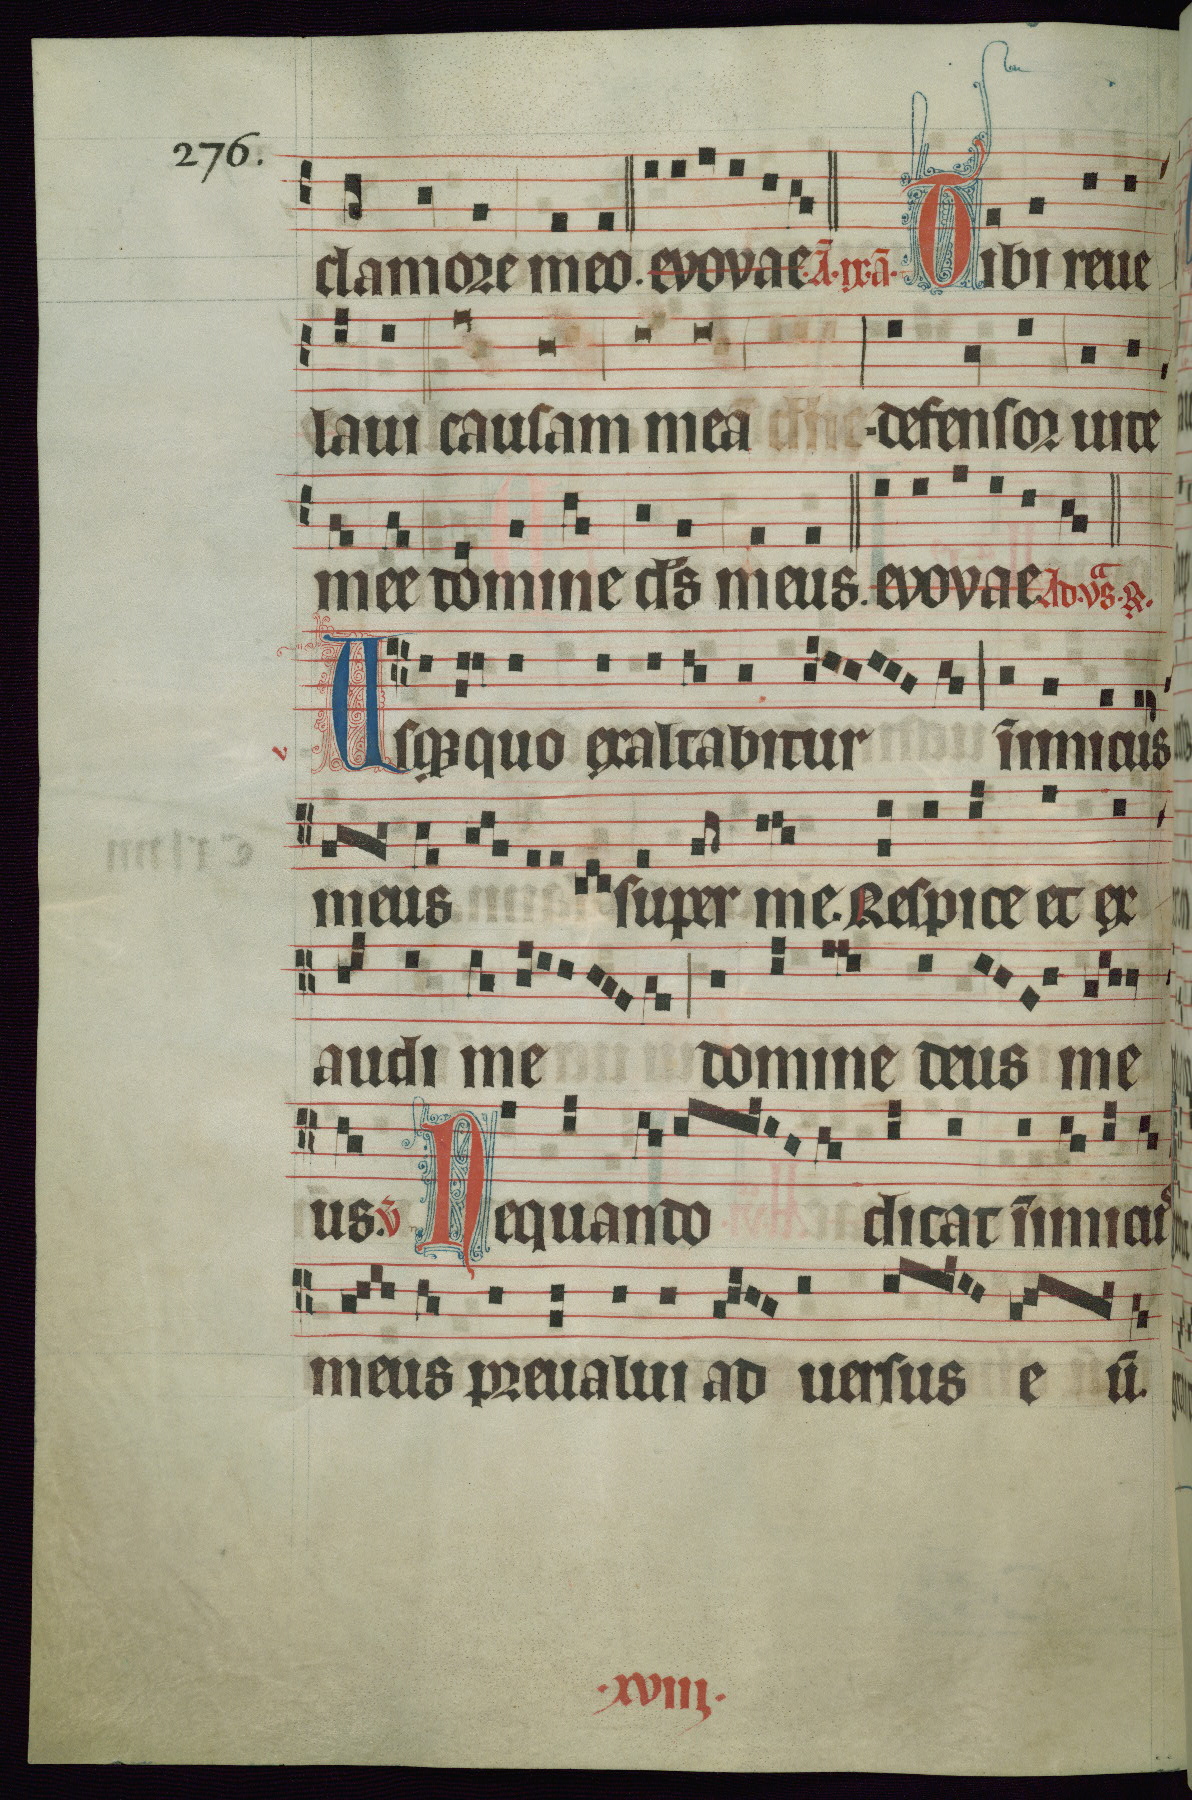 276.
clamore meo. evovae. A. ix. a. Tibi reue
laui causam mea defensor uite
mee domine ds meus. evovae Ad vs. R.
Usqꝫquo exaltabitur inimicus
meus super me. Respice et ex
audi me domine deus me
us. v Nequando dicat inimicus
meus preualui ad uersus e ū.
.xviii.